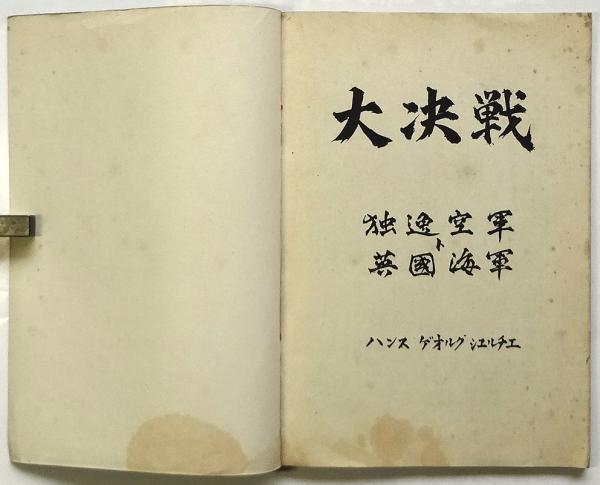 大决戦
独逸空軍
ト
英國海軍
ハンス ゲオルグ シエルチエ